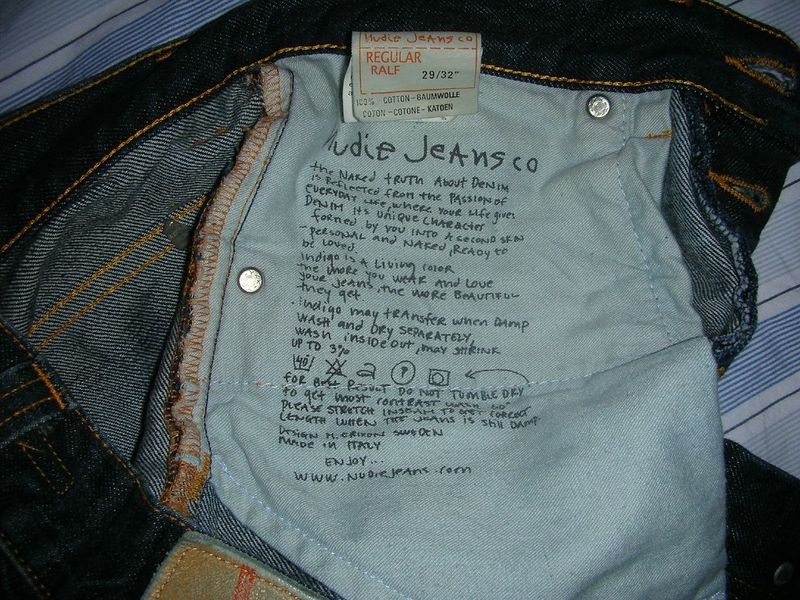 Nudie Jeans co
REGULAR
RALF
29/32"
100% COTTON-BAUMWOLLE
COTON-COTONE-KATOEN
Nudie Jeans co
the NAKED tRUth About DENIM
is REflECtED from the PASSION of
EVERYDAY LIfE, whERE YOUR LIfE gives
DENIM its UNIQUE CHARACtER
formED by YOU INto A SECOND SKIN
- pERSONAL AND NAKED, REaDy to
be LOVED
Indigo is A Living coloR
the moRE YOU WEAR AND LOVE
YOUR JEANS, the MORE BEAUTIFUL
they get
. Indigo may tRANSfER when DAmp
WASH and DRY SEPARAtELY,
WASH INSIDE OUt, may SHRINK
UP tO 3%
40°
P
foR BEst RESULT DO NOT TUMBLE DRY
to get most CONtRASt WASH 60°
PLEASE StREtCH INSEAM to GEt CORRECT
LENGtH WHEN THE JEANS IS StIll DAmp
DESIGN M. ERIXON SWEDEN
MADE IN ITALY
ENJOY...
WWW.NUDIEJEANS.COM